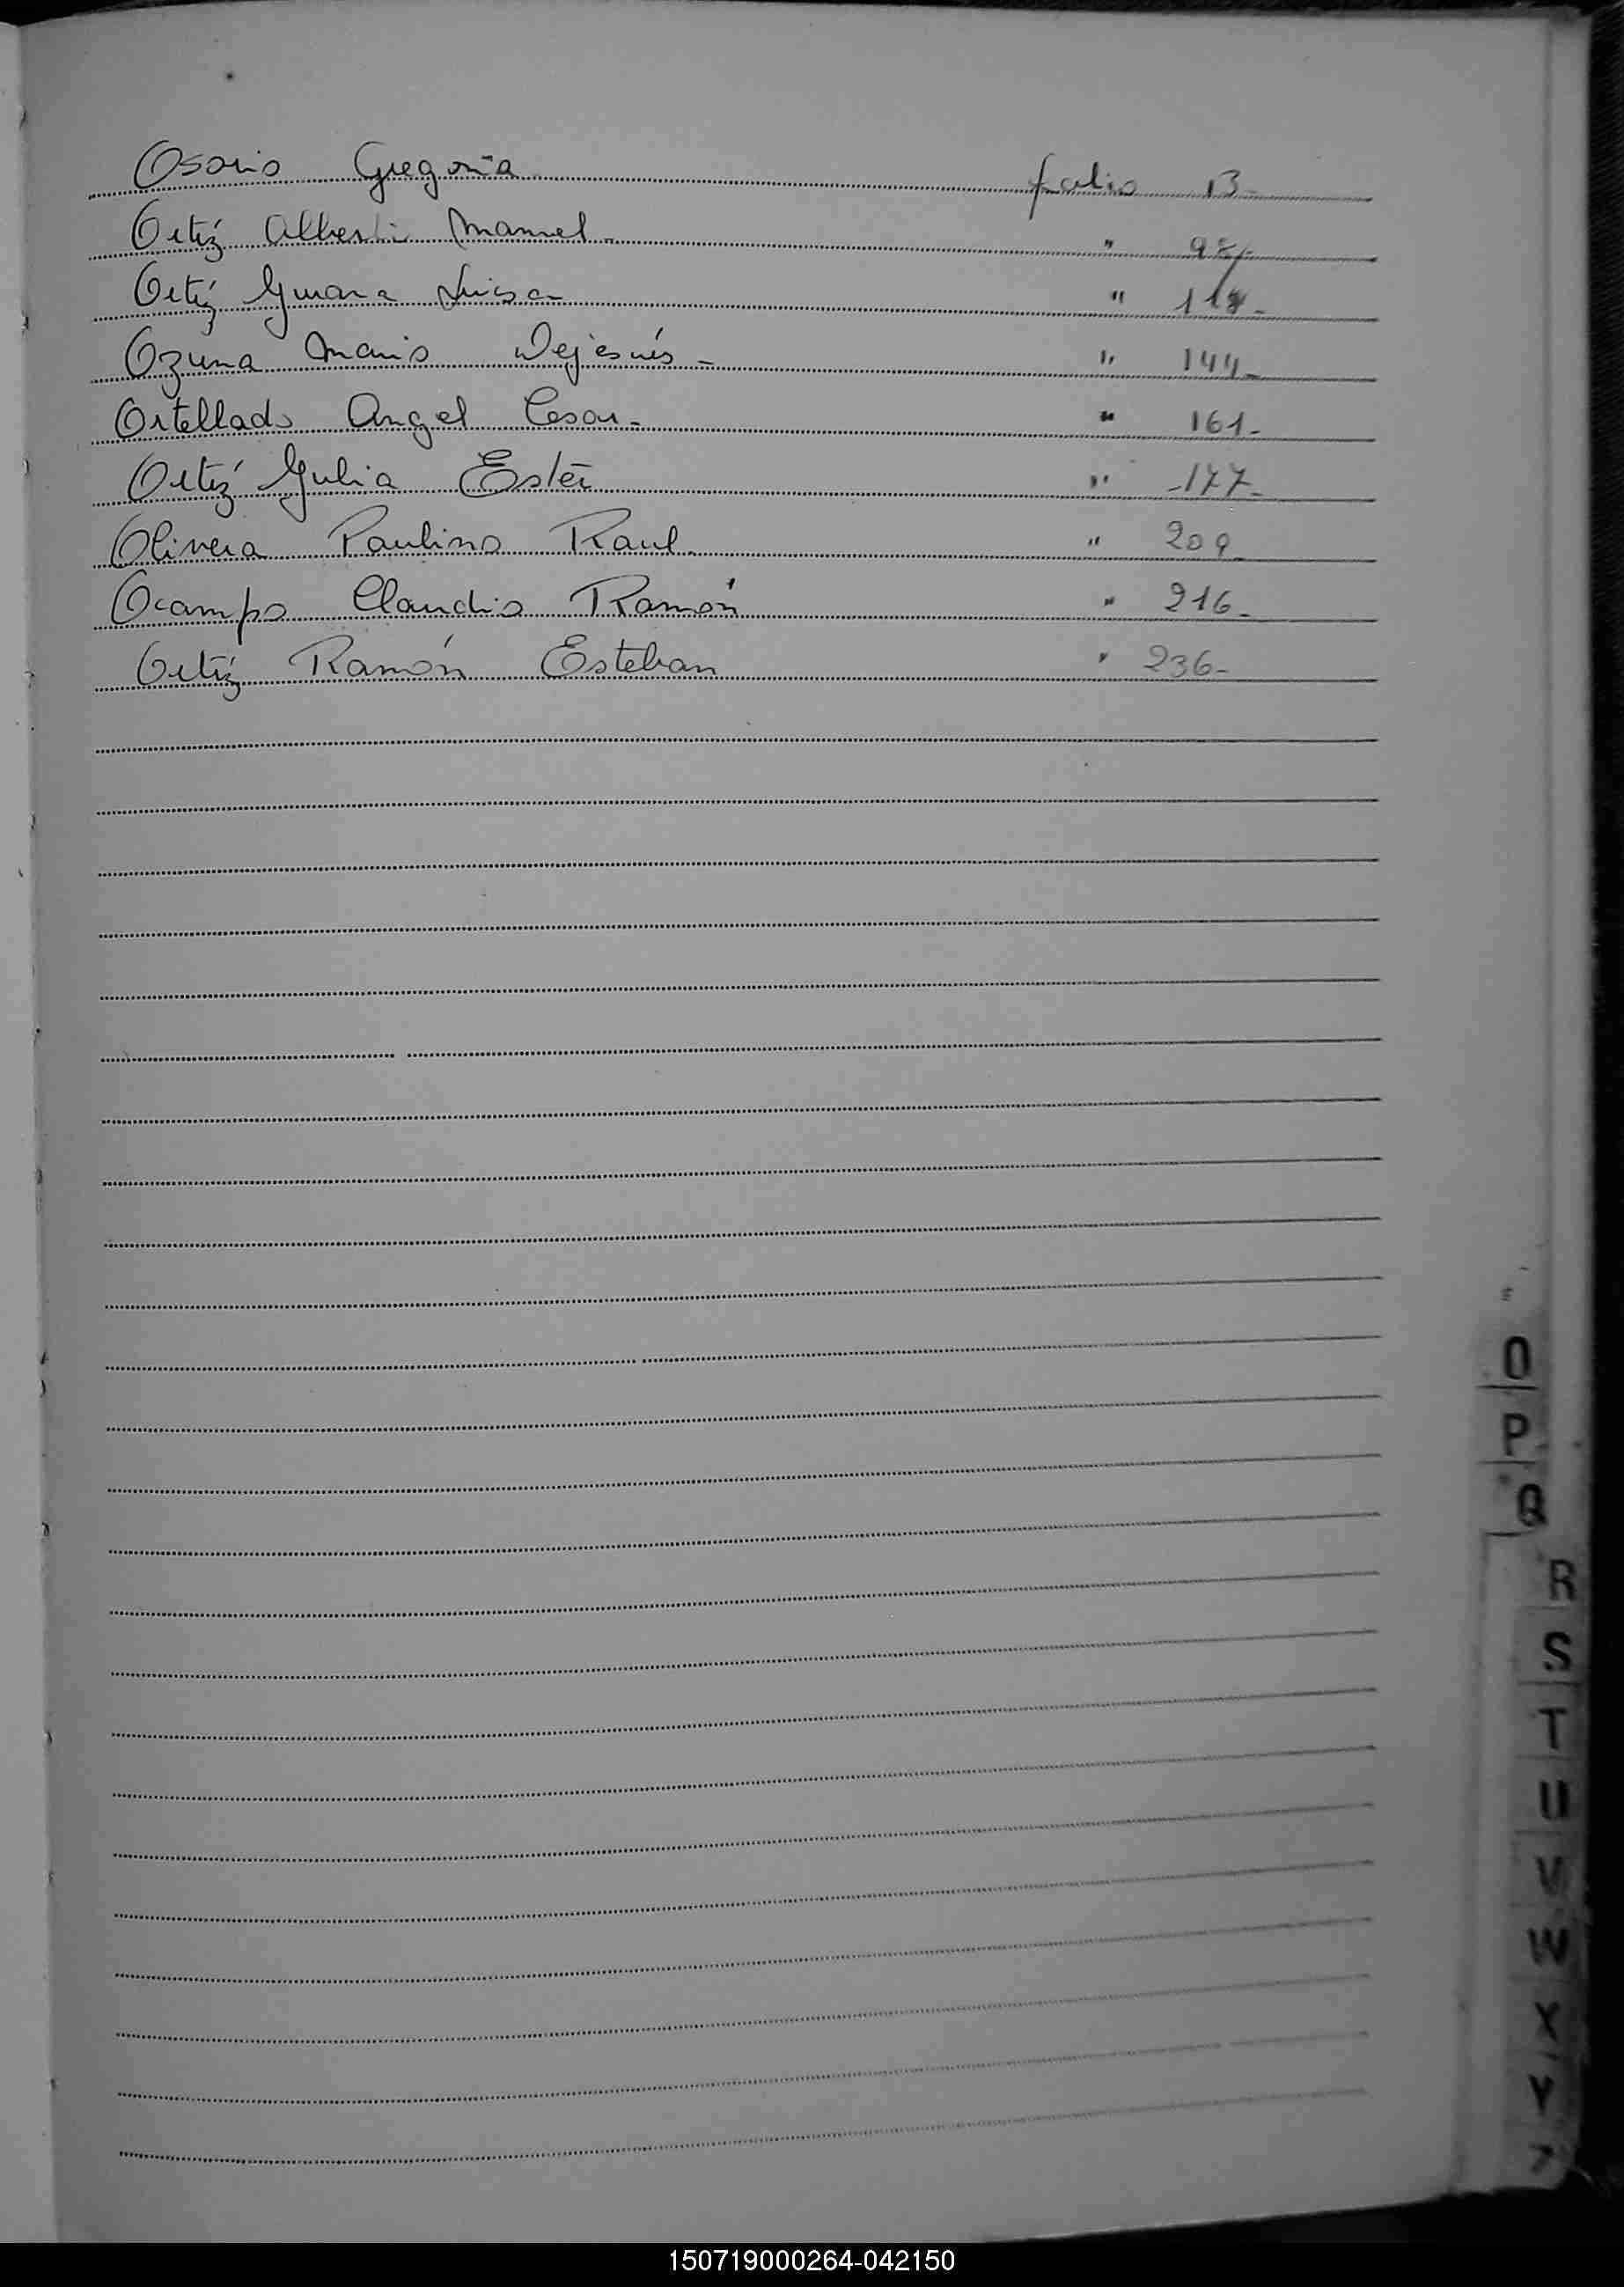 Osorio Gregoria folio 13-
Ortíz Alberto Manuel - " 98-
Ortíz Luisa "
Ozuna Mario Dejesús - " 144-
Ortellado Angel Cesar - " 161-
Ortíz Julia Ester " -177-
Olivera Paulino Raul " 209-
Ocampo Claudio Ramón " 216-
Ortíz Ramón Esteban " 236-
O
P
Q
R
S
T
U
V
W
X
Y
Z
150719000264-042150